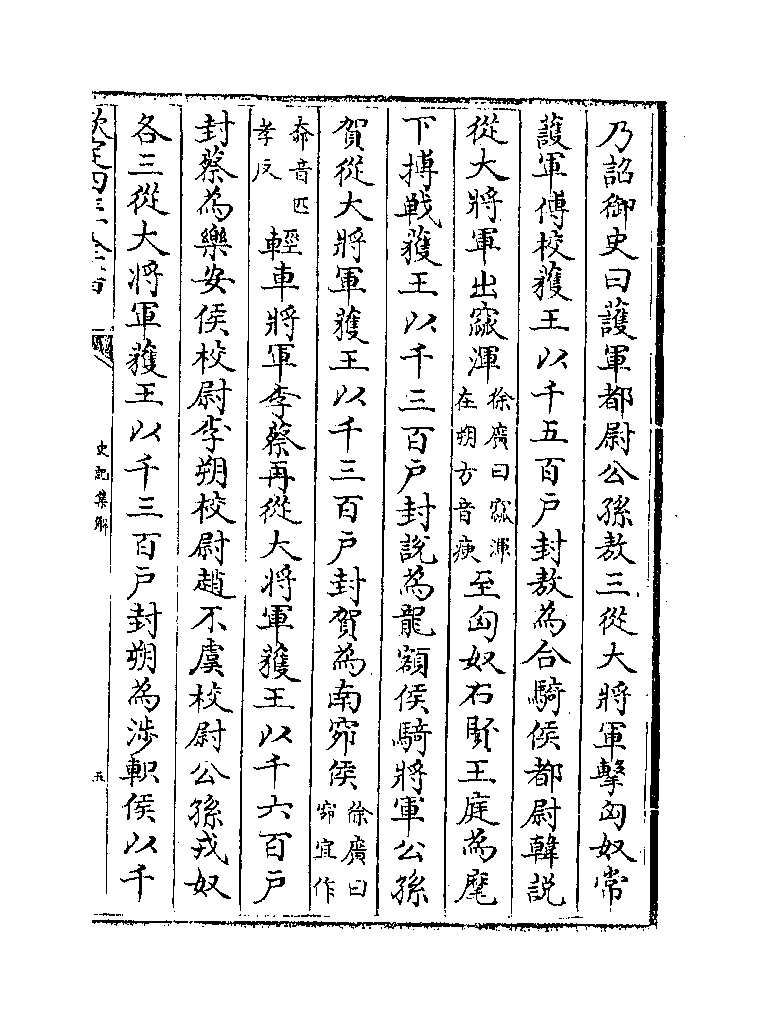 乃詔御史曰護軍都尉公孫敖三從大將軍擊匈奴常
護軍傅校獲王以千五百户封敖為合騎侯都尉韓説
從大將軍出窳渾徐廣曰窳渾在朔方音庾至匈奴右賢王庭為麾
下搏戰獲王以千三百户封說為龍額侯騎將軍公孫
賀從大將軍獲王以千三百户封賀為南窌侯徐廣曰窌宜作
奅音匹孝反輕車將軍李蔡再從大將軍獲王以千六百户
封蔡為樂安侯校尉李朔校尉趙不虞校尉公孫戎奴
各三從大將軍獲王以千三百户封朔為涉軹侯以千
欽定四庫全書
史記集解
五